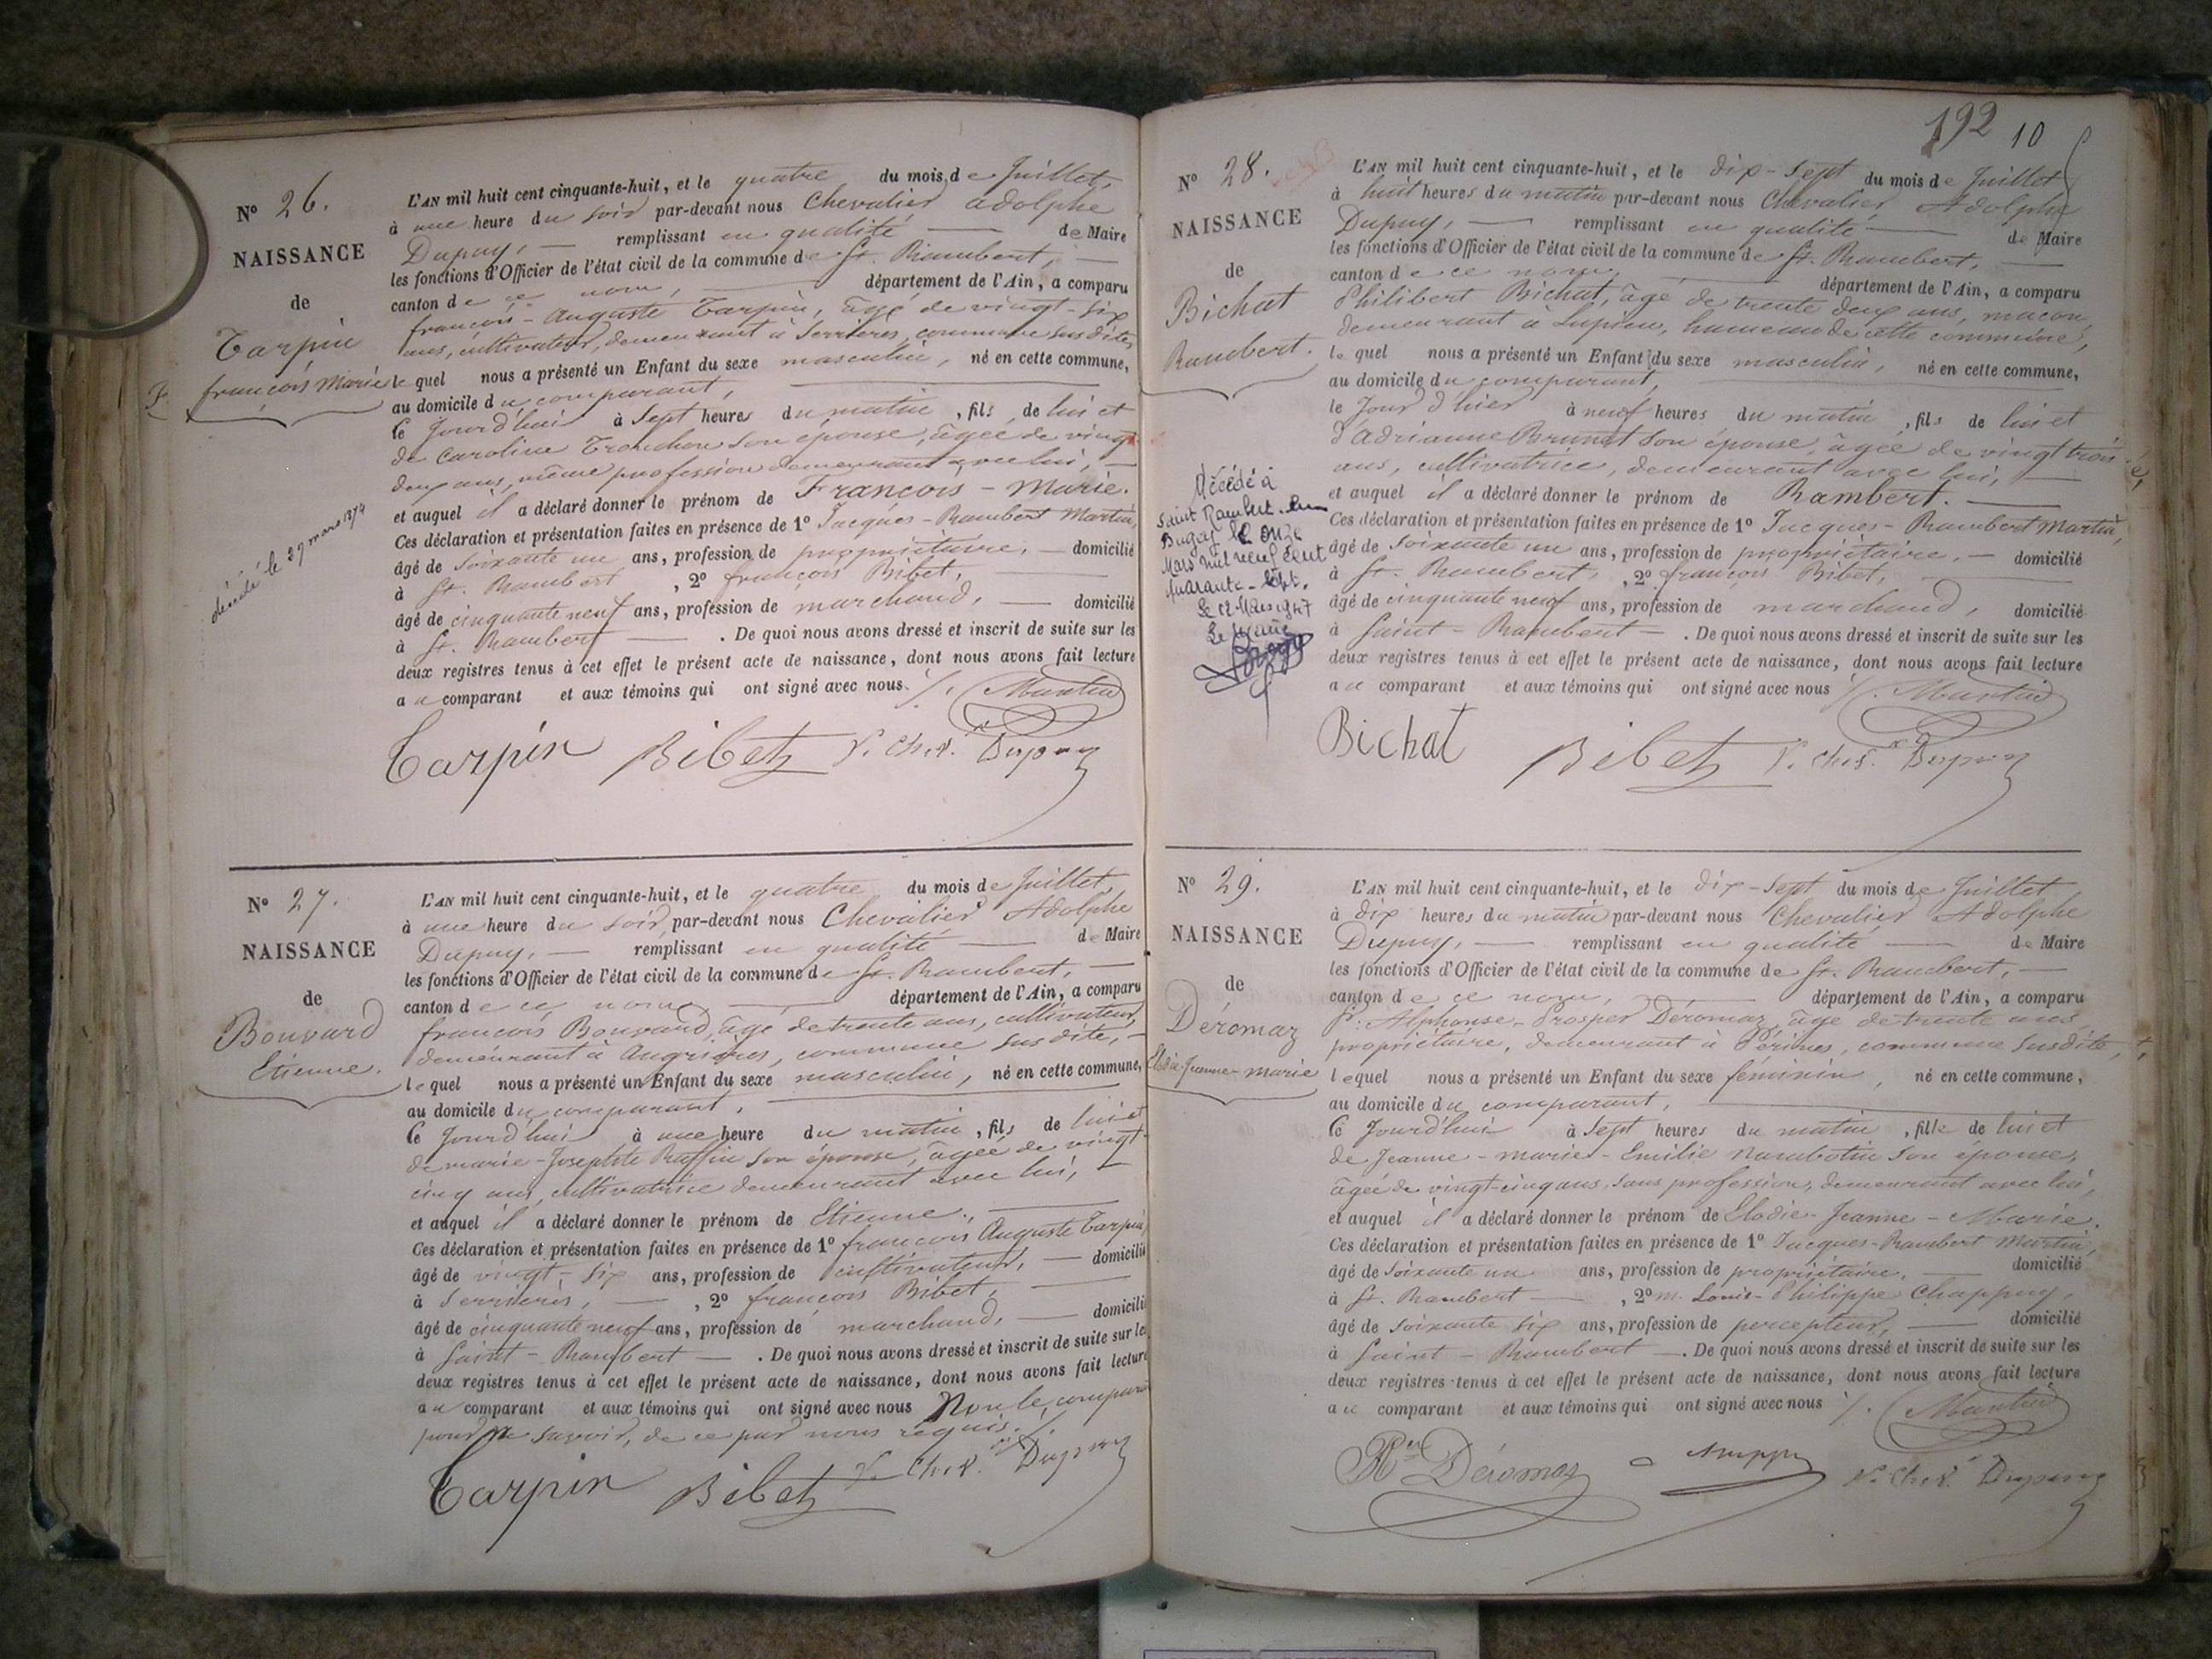 N° 26.
NAISSANCE
de
Tarpin
françois Marie
décédé le 29 mars 1874
L'AN mil huit cent cinquante-huit, et le quatre du mois de Juillet,
à une heure du soir par-devant nous Chevalier adolphe
Dupuy, — remplissant en qualité — de Maire
les fonctions d'Officier de l'état civil de la commune de St. Rambert, —
canton de ce nom, — département de l'Ain, a comparu
françois-Auguste Tarpin, âgé de vingt-six
ans, cultivateur, demeurant à Serrières, commune susdite,
lequel nous a présenté un Enfant du sexe masculin, né en cette commune,
au domicile du comparant, —
Ce Jourd'hui à Sept heures du matin, fils de lui et
de Caroline Tronchon son épouse, âgée de vingt
deux ans, même profession demeurant avec lui, —
et auquel il a déclaré donner le prénom de François-Marie.
Ces déclaration et présentation faites en présence de 1° Jacques-Rambert Martin,
âgé de Soixante un ans, profession de propriétaire, — domicilié
à St. Rambert, 2° françois Bibet, —
âgé de cinquante neuf ans, profession de marchand, — domicilié
à St. Rambert — . De quoi nous avons dressé et inscrit de suite sur les
deux registres tenus à cet effet le présent acte de naissance, dont nous avons fait lecture
au comparant et aux témoins qui ont signé avec nous ./. Martin
Tarpin Bibet V. Cher. Dupuy
N° 27.
NAISSANCE
de
Bouvard
Etienne.
L'AN mil huit cent cinquante-huit, et le quatre du mois de Juillet,
à une heure du soir, par-devant nous Chevalier Adolphe
Dupuy, — remplissant en qualité — de Maire
les fonctions d'Officier de l'état civil de la commune de St. Rambert, —
canton de ce nom — département de l'Ain, a comparu
françois Bouvard, âgé de trente ans, cultivateur,
demeurant à Angrières, commune susdite, —
lequel nous a présenté un Enfant du sexe masculin, né en cette commune,
au domicile du comparant, —
Ce Jourd'hui à une heure du matin, fils de lui et
de marie-Josephte Raffin son épouse, âgée de vingt-
cinq ans, cultivatrice demeurant avec lui, —
et auquel il a déclaré donner le prénom de Etienne., —
Ces déclaration et présentation faites en présence de 1° françois Auguste Tarpin,
âgé de vingt-six ans, profession de cultivateur, — domicilié
à Serrières, — , 2° françois Bibet, —
âgé de cinquante neuf ans, profession de marchand, — domicilié
à Saint-Rambert — . De quoi nous avons dressé et inscrit de suite sur les
deux registres tenus à cet effet le présent acte de naissance, dont nous avons fait lecture
au comparant et aux témoins qui ont signé avec nous Non le compara
pour ne savoir, de ce par nous requis ./.
Tarpin Bibet V. Cher. Dupuy
192 10
N° 28.
NAISSANCE
de
Bichat
Rambert.
Décédé à
Saint Rambert-en
Bugey le onze
Mars mil neuf cent
quarante-sept.
Le 12 Mars 1947
Le Maire
L'AN mil huit cent cinquante-huit, et le dix-sept du mois de Juillet
à huit heures du matin par-devant nous Chevalier Adolphe
Dupuy, — remplissant en qualité — de Maire
les fonctions d'Officier de l'état civil de la commune de St. Rambert, —
canton de ce nom, — département de l'Ain, a comparu
Philibert Bichat, âgé de trente deux ans, maçon,
demeurant à Lupieu, hameau de cette commune,
lequel nous a présenté un Enfant du sexe masculin, né en cette commune,
au domicile du comparant, —
le Jour d'hier à neuf heures du matin, fils de lui et
d'Adrianne Brunet son épouse, âgée de vingt trois
ans, cultivatrice, demeurant avec lui, —
et auquel il a déclaré donner le prénom de Rambert. —
Ces déclaration et présentation faites en présence de 1° Jacques-Rambert Martin,
âgé de Soixante un ans, profession de propriétaire, — domicilié
à St. Rambert, , 2° françois Bibet, —
âgé de cinquante neuf ans, profession de marchand, domicilié
à Saint-Rambert — . De quoi nous avons dressé et inscrit de suite sur les
deux registres tenus à cet effet le présent acte de naissance, dont nous avons fait lecture
au comparant et aux témoins qui ont signé avec nous ./. Martin
Bichat Bibet V. Cher. Dupuy
N° 29.
NAISSANCE
de
Déromaz
Elodie-Jeanne-marie
L'AN mil huit cent cinquante-huit, et le dix-Sept du mois de Juillet
à dix heures du matin par-devant nous Chevalier Adolphe
Dupuy, — remplissant en qualité — de Maire
les fonctions d'Officier de l'état civil de la commune de St. Rambert, —
canton de ce nom, — département de l'Ain, a comparu
Alphonse-Prosper Déromaz, âgé de trente ans
propriétaire, demeurant à Pérines, commune susdite,
lequel nous a présenté un Enfant du sexe féminin, né en cette commune,
au domicile du comparant, —
Ce Jourd'hui à Sept heures du matin, fille de lui et
de Jeanne-marie-Emilie Nambotin son épouse,
âgée de vingt-cinq ans, sans profession, demeurant avec lui,
et auquel il a déclaré donner le prénom de Elodie-Jeanne-Marie.
Ces déclaration et présentation faites en présence de 1° Jacques-Rambert Martin,
âgé de Soixante un ans, profession de propriétaire, — domicilié
à St. Rambert — , 2° m. Louis-Philippe Chappuy,
âgé de Soixante six ans, profession de percepteur, — domicilié
à Saint-Rambert — . De quoi nous avons dressé et inscrit de suite sur les
deux registres tenus à cet effet le présent acte de naissance, dont nous avons fait lecture
au comparant et aux témoins qui ont signé avec nous ./. Martin
Déromaz V. Cher. Dupuy